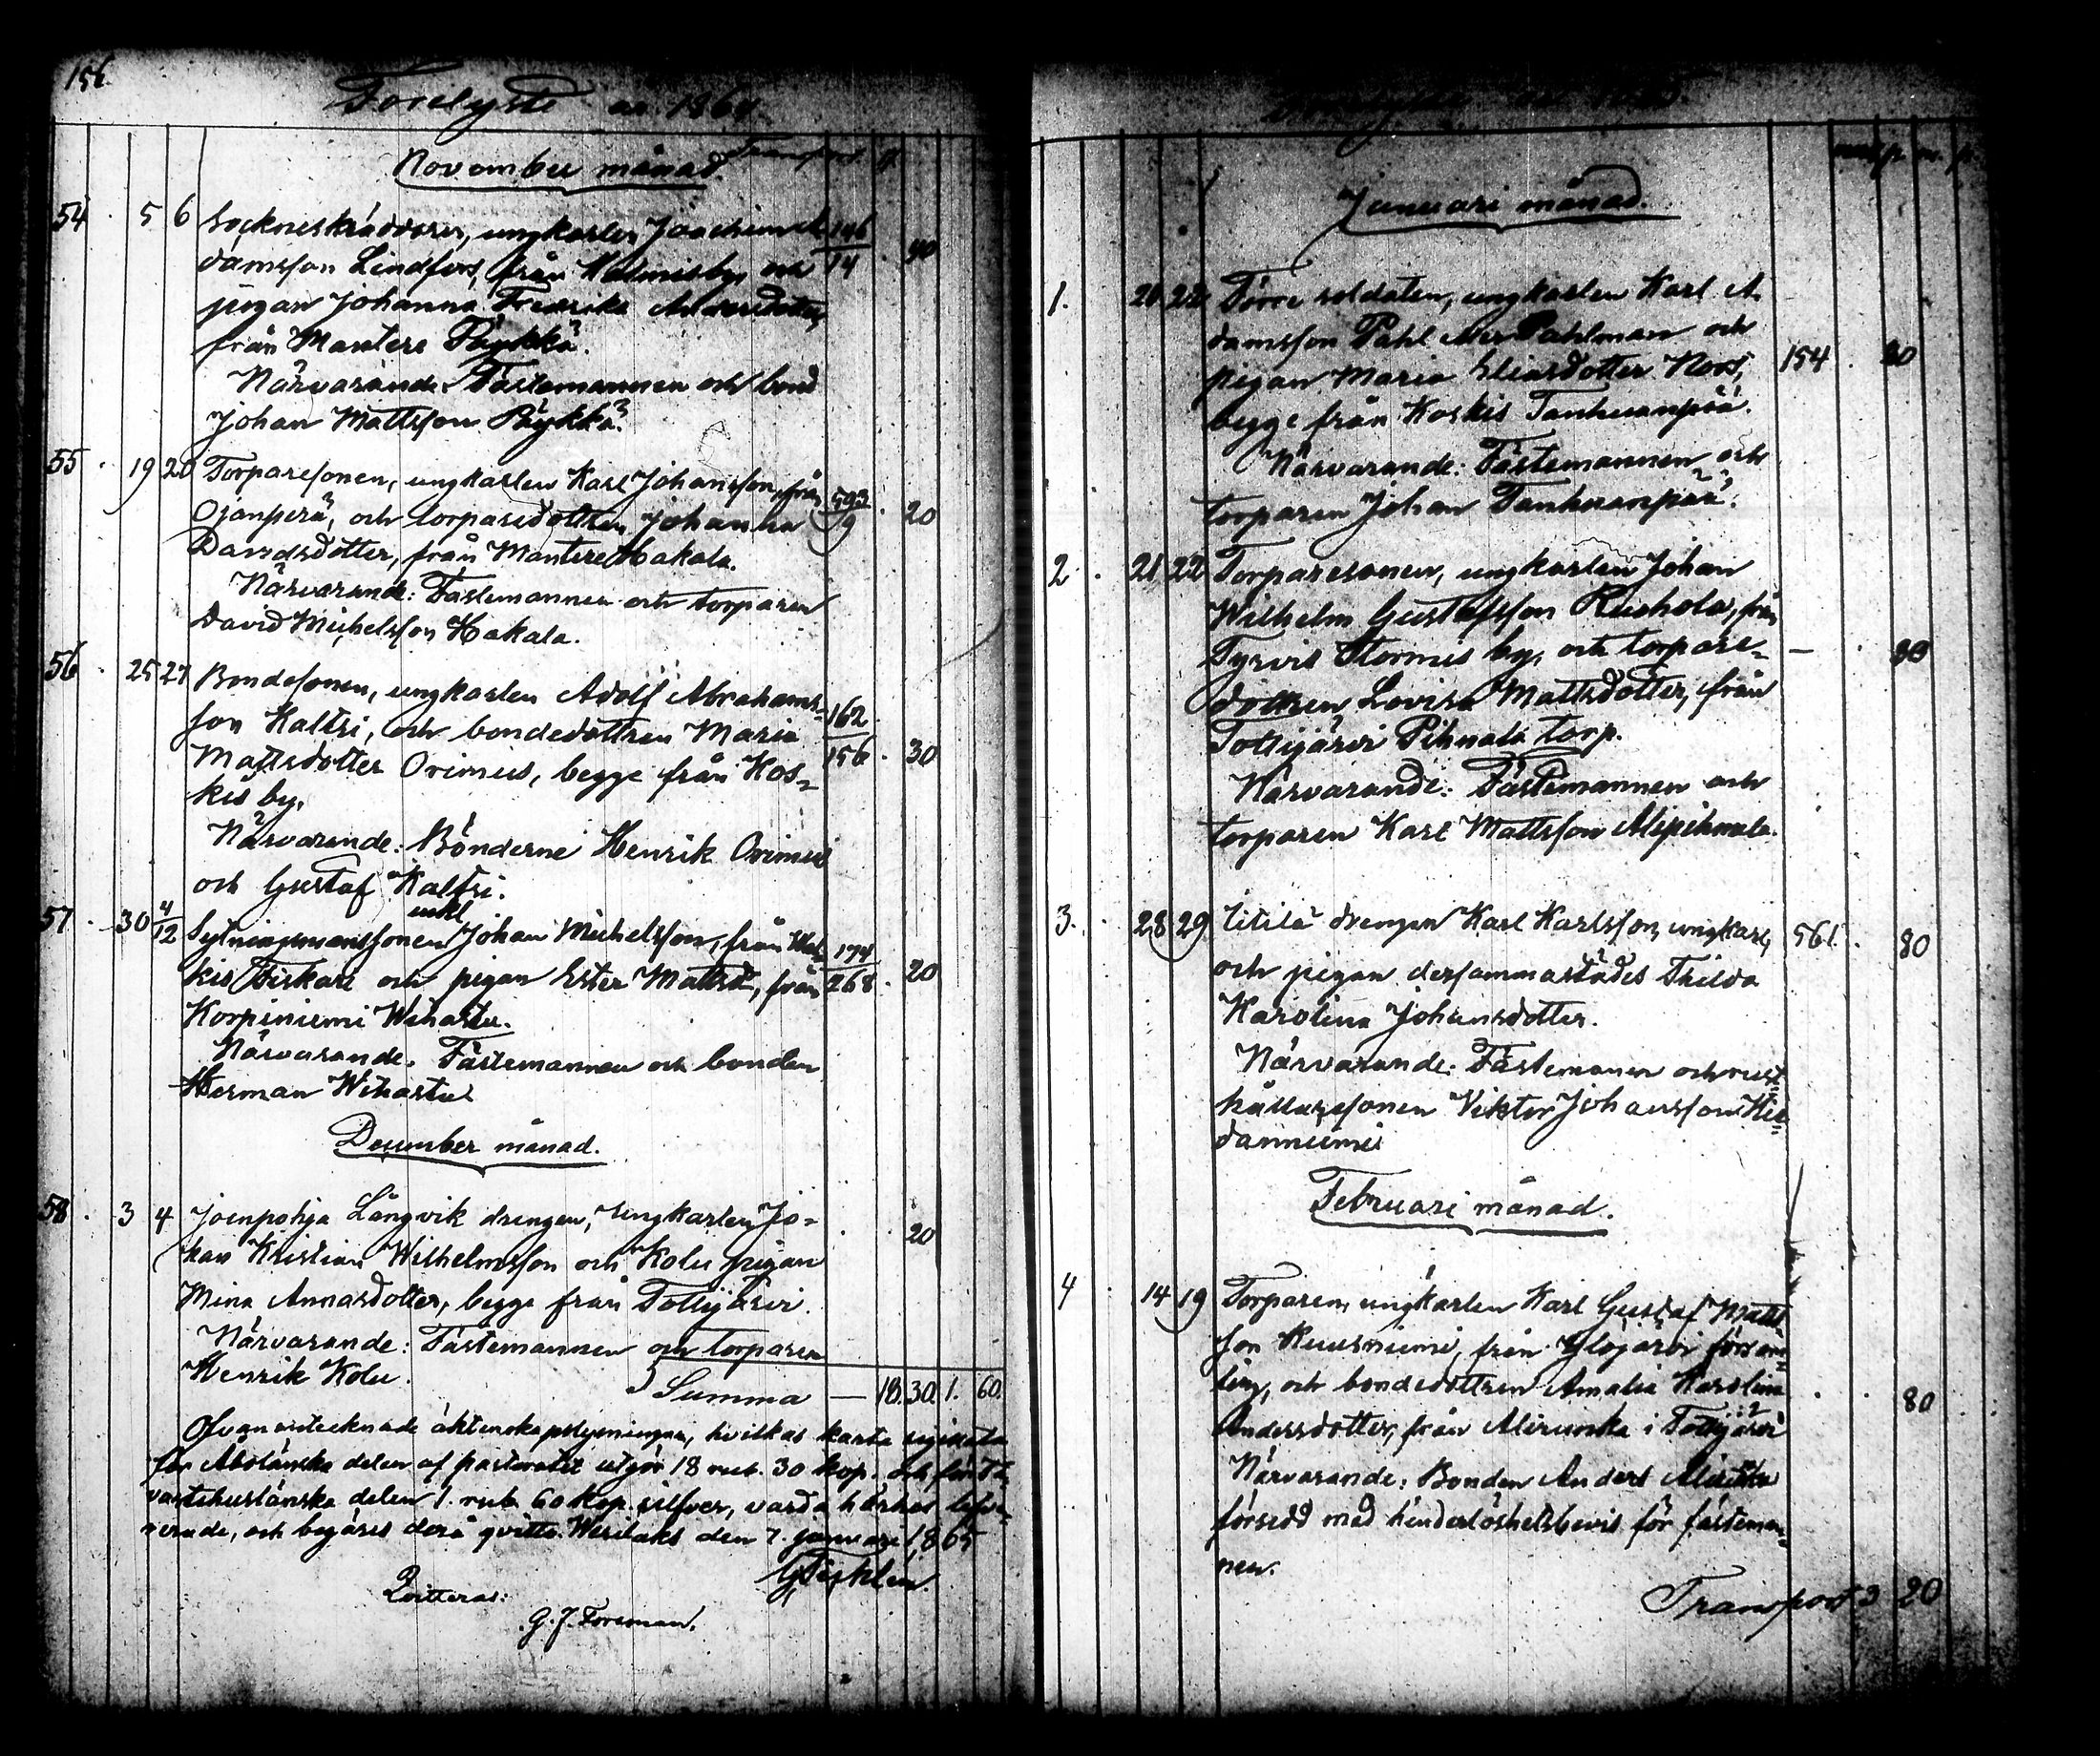 156.
Förelyste år 1864.
November månad. Transport
54. 5 6 Sockneskräddaren, ungkarlen Joachim A 146
damsson Lindfors, från Halmisby, och 14 . 40
pigan Johanna Fredrika Andersdotter,
från Mantere Päykkä.
Närvarande: Fästemannen och bond
Johan Mattsson Päykkä.
55. 19 20 Torparesonen, ungkarlen Karl Johansson, från 593
Ojanperä, och torparedottren Johanna 9 . 20
Davidsdotter, från Mantere Hakala.
Närvarande: Fästemannen och torparen
David Michelsson Hakala.
56. 25 27 Bondesonen, ungkarlen Adolf Abrahams-
son Kaltsi, och bondedottren Maria 162
Mattsdotter Orimus, begge från Kos- 156 . 30
kis by.
Närvarande: Bönderne Henrik Orimus
och Gustaf Kaltsi.
enkl
57. 30 4/12 Sytningsmanssonen Johan Michelsson, från 174
kis Piskari och pigan Ester Mattsd, från 268 . 20
Korpiniemi Wihastu.
Närvarande: Fästemannen och bonden
Herman Wihastu
December månad.
58. 3 4 Joenpohja Långvik drengen, ungkarlen Jo-
han Kristian Wilhelmsson och Kolu pigan 20
Mina Annasdotter, begge från Tottijärvi.
Närvarande: Fästemannen och torparen
Henrik Kolu.
Summa — 18. 30. 1. 60.
Ofvanantecknade äktenskapslysningar, hvilkas karta
för Åbolänska delen af pastoratet utgör 18 rub. 30 kop. och för Ta-
vastehuslänska delen 1. rub. 60 kop. silfver, varda härhos
och begäres derå qvitto. Wesilaks den 7. januari 1865
Qvitteras:
G. J. Forsman.
Januari månad.
1. 21 22 Förre soldaten, ungkarlen Karl A-
damsson Pahl eller Pahlman och
pigan Maria Eliasdotter Roos, 154 . 80
begge från Koskis Tanhuanpää.
Närvarande: Fästemannen och
torparen Johan Tanhuanpää.
2. 21 22 Torparesonen, ungkarlen Johan
Wilhelm Gustafsson Ruohola, från
Tyrvis Stormis by, och torpare- — . 80
dottren Lovisa Mattsdotter, från
Tottijärvi Pihnala torp.
Närvarande: Fästemannen och
torparen Karl Mattsson Alipihnala.
3. 28 29 Utila drengen Karl Karlsson, ungkarl, 561. . 80
och pigan dersammastädes Thilda
Karolina Johansdotter.
Närvarande: Fästemannen och rust-
hållaresonen Viktor Johansson Hie-
danniemi
Februari månad.
4 14 19 Torparen, ungkarlen Karl Gustaf Matts
son Kuusniemi, från Ylöjärvi försam-
ling, och bondedottren Amalia Karolina . 80
Andersdotter, från Alirunka i Tottijärvi
Närvarande: Bonden Anders
försedd med hinderlöshetsbevis för fästeman-
nen.
Transport 3 20